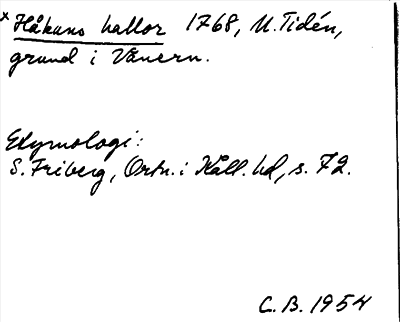 x Håkans hallor 1768, U. Tidén,
grund i Vänern.
Etymologi:
S. Friberg, Ortn. i Kåll. hd, s. 72.
C. B. 1954